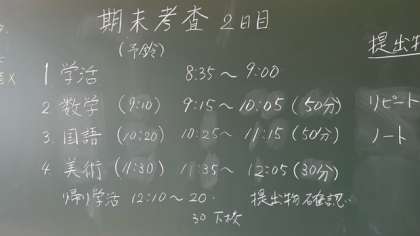 期末考査 2日目
(予鈴)
提出物
1 学活 8:35〜9:00
2. 数学 (9:10) 9:15〜10:05 (50分) リピート
3. 国語 (10:20) 10:25〜11:15 (50分) ノート
4. 美術 (11:30) 11:35〜12:05 (30分)
帰り学活 12:10〜20. 提出物確認
30 下校